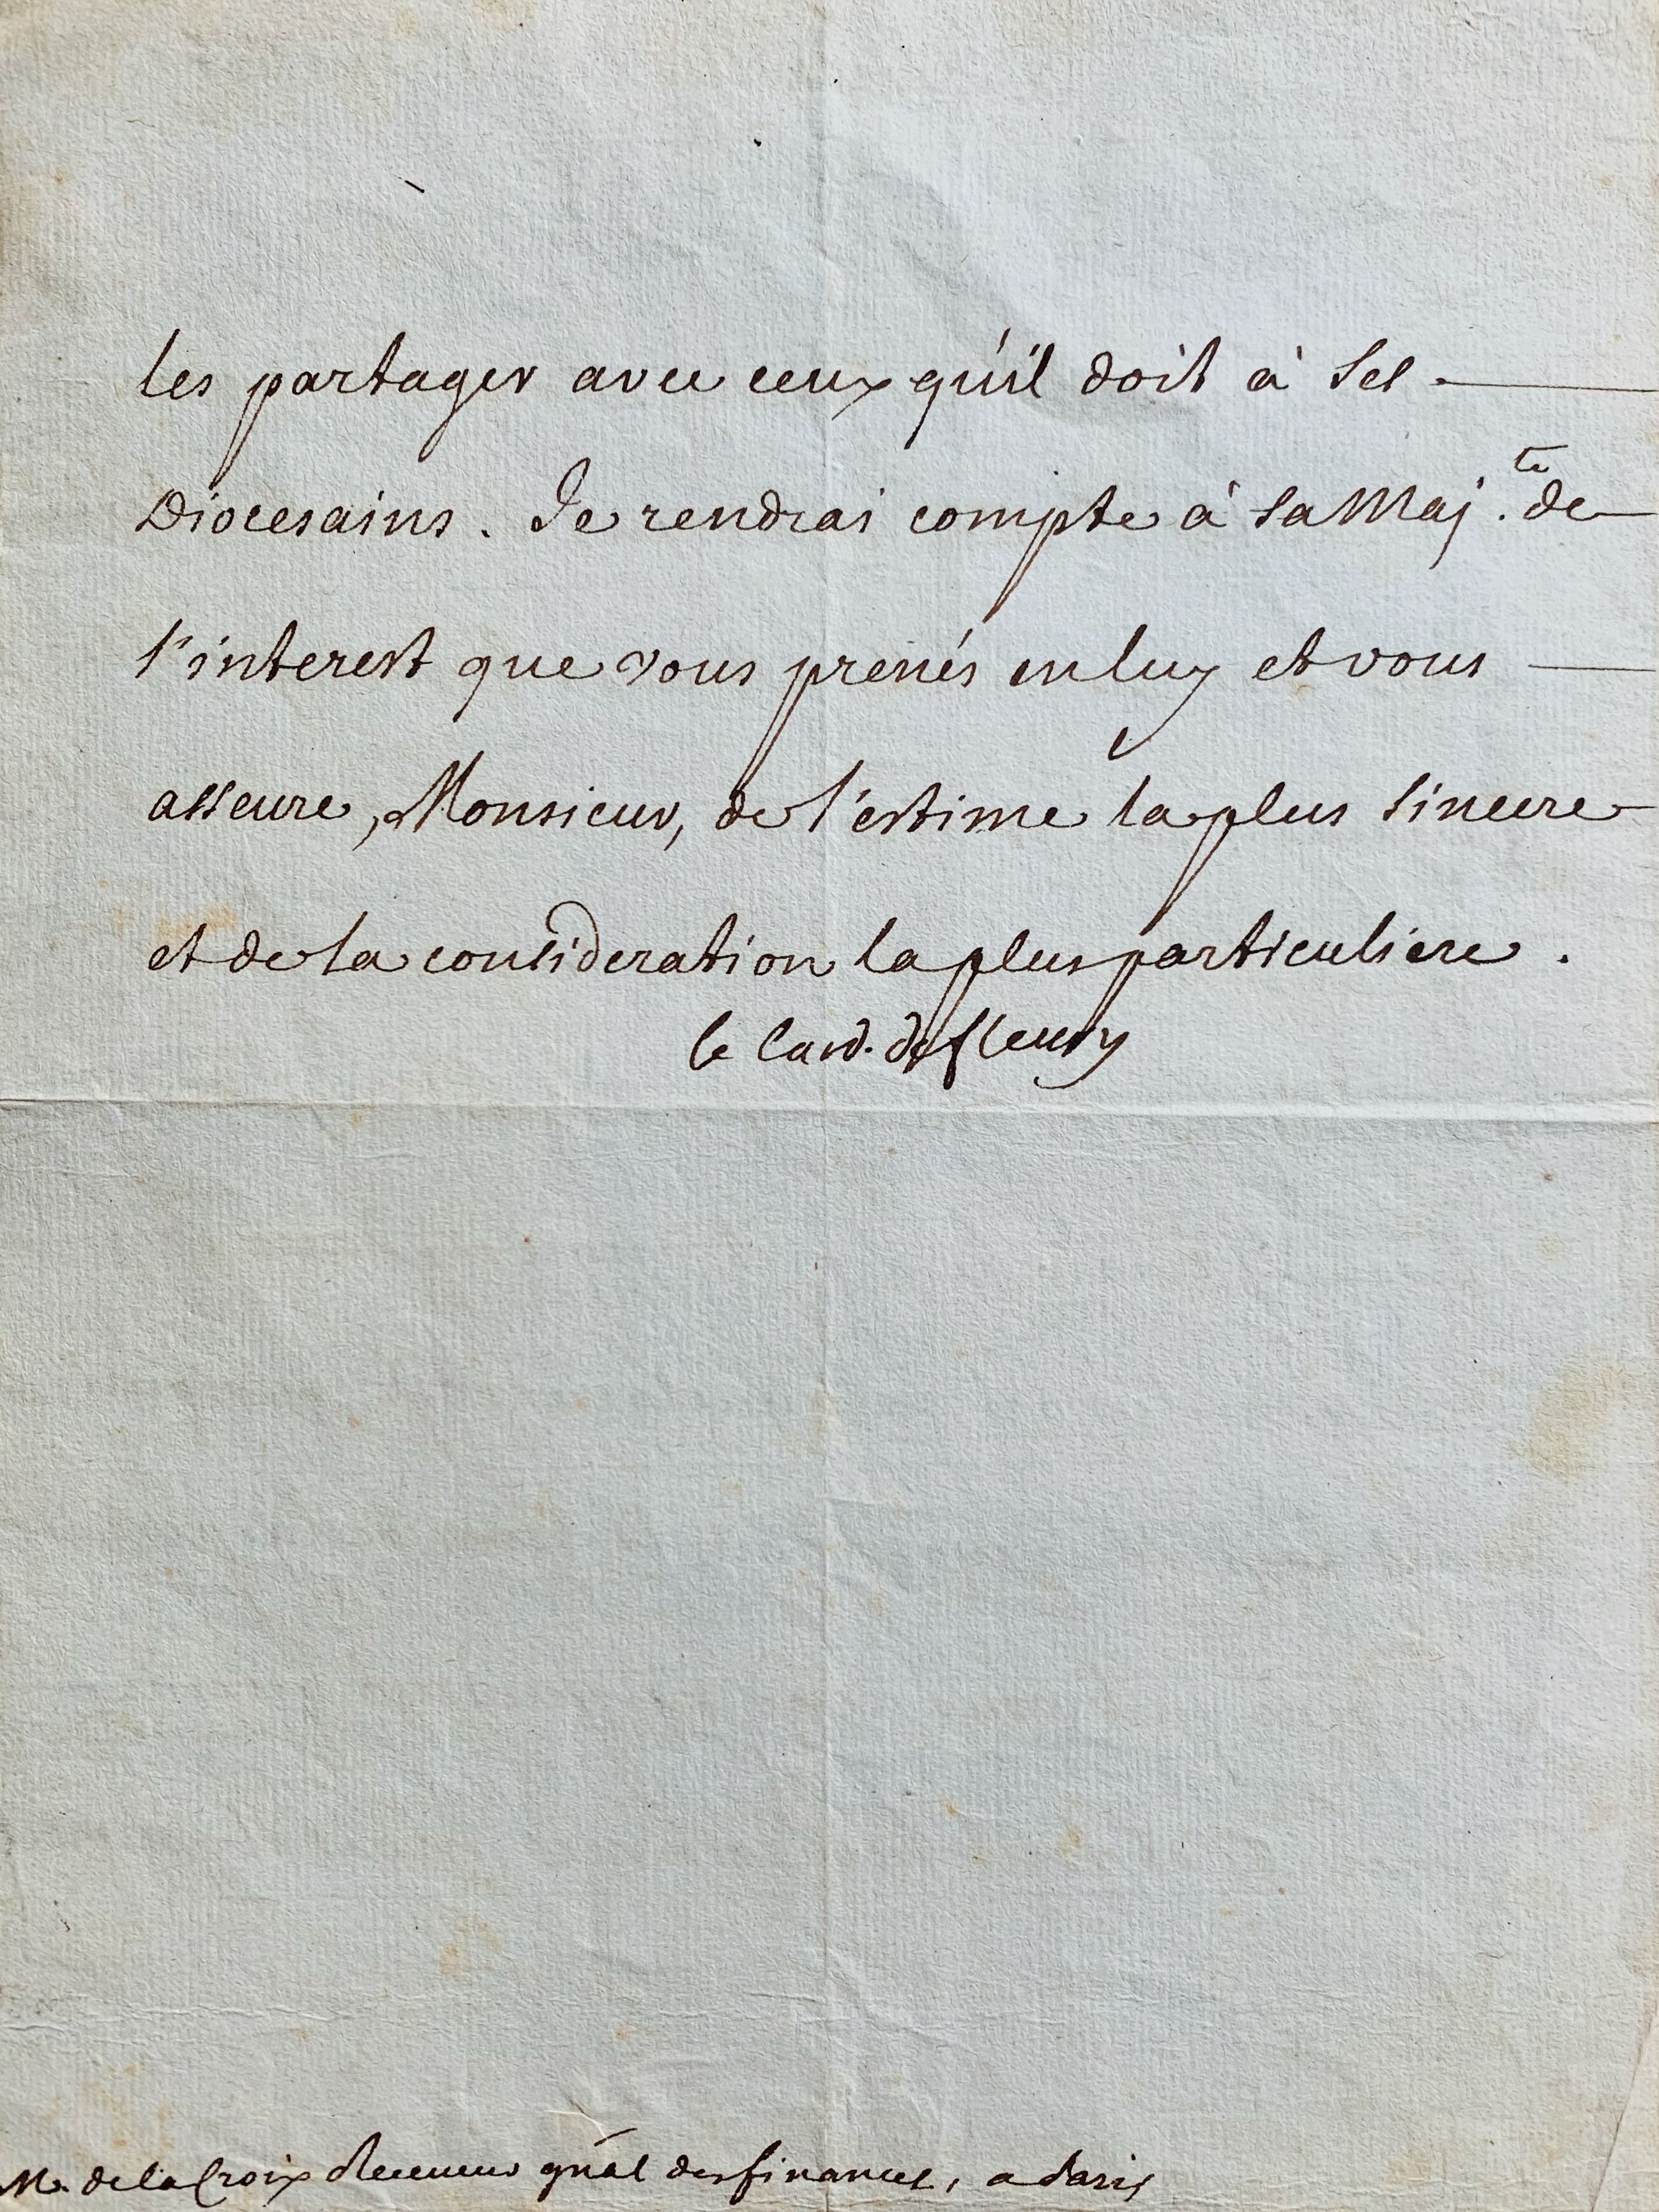 les partager avec ceux qu'il doit à ses
Diocesains. Je rendrai compte à sa Maj.té de
l'interest que vous prenés en luy et vous
asseure, Monsieur, de l'estime la plus sincere
et de la consideration la plus particuliere.
le Card. de fleury
M. de la Croix Receveur gnãl des finances, a Paris